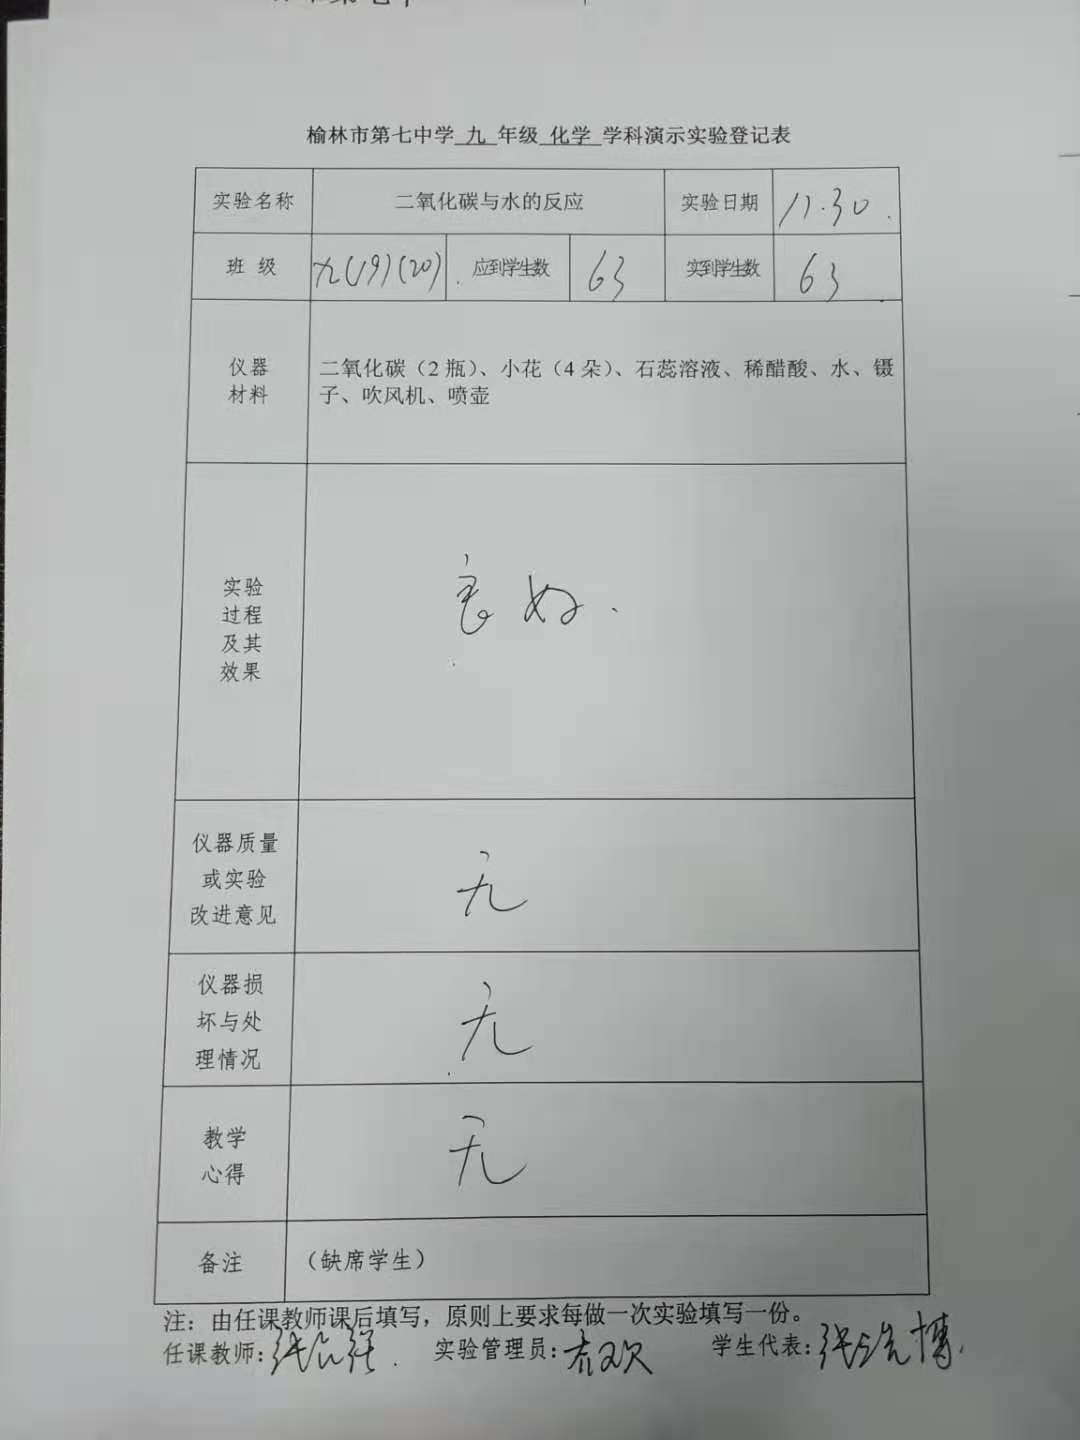 榆林市第七中学 九 年级 化学 学科演示实验登记表
实验名称 二氧化碳与水的反应 实验日期 11.30.
班 级 九(19)(20). 应到学生数 63 实到学生数 63
仪器
材料
二氧化碳（2 瓶）、小花（4 朵）、石蕊溶液、稀醋酸、水、镊
子、吹风机、喷壶
实验
过程
及其
效果
良好.
仪器质量
或实验
改进意见
无
仪器损
坏与处
理情况
无
教学
心得
无
备注 （缺席学生）
注：由任课教师课后填写，原则上要求每做一次实验填写一份。
任课教师: 实验管理员: 学生代表: